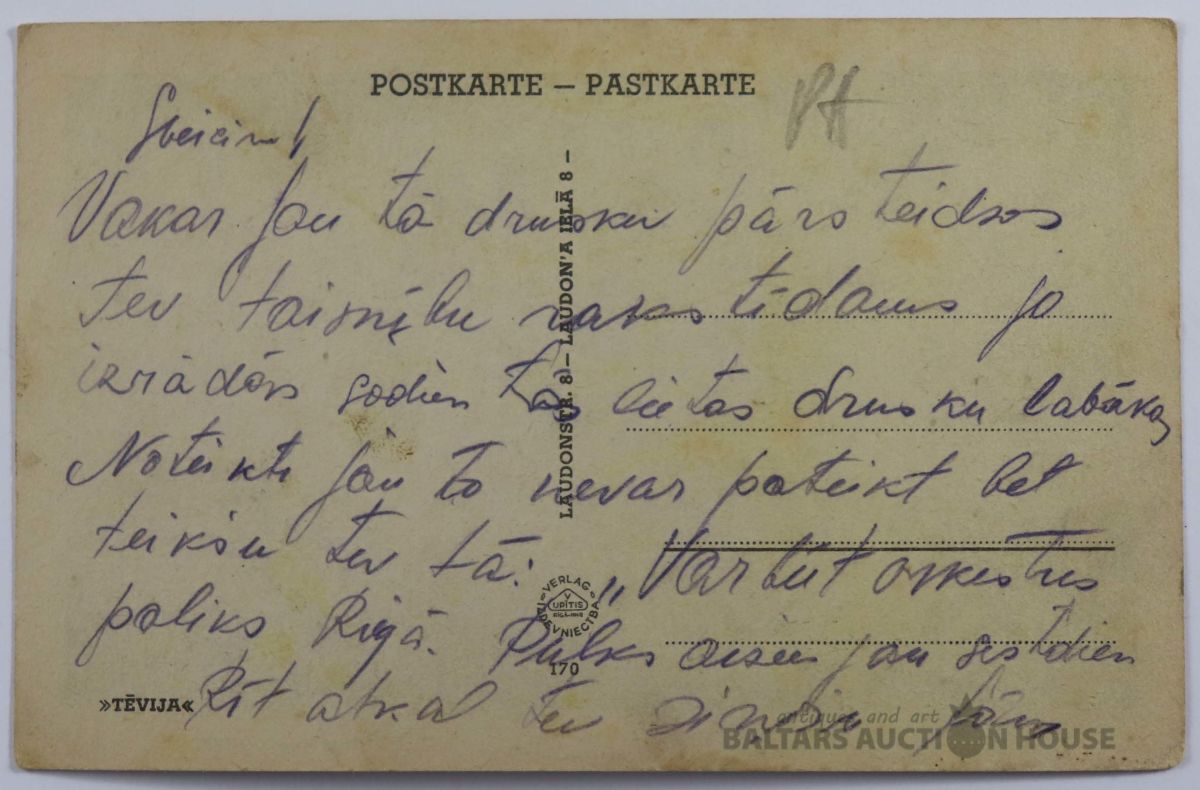 POSTKARTE — PASTKARTE
PA
Sveicinu!
Vakar jau tā drusku pārsteidzos
tev taisnību rakstīdams jo
izrādās šodien tās lietas drusku labākas
Noteikti jau to nevar pateikt bet
teikšu tev tā: „Varbūt orkestris
paliks Rīgā. Pulks aizies jau sestdien
Rīt atkal tev ziņošu
LAUDONSTR. 8 — LAUDON'A IELĀ 8 —
VERLAG
V
UPĪTIS
RĪGĀ
IZDEVNIECĪBA
170
»TĒVIJA«
antiques and art
BALTARS AUCTION HOUSE